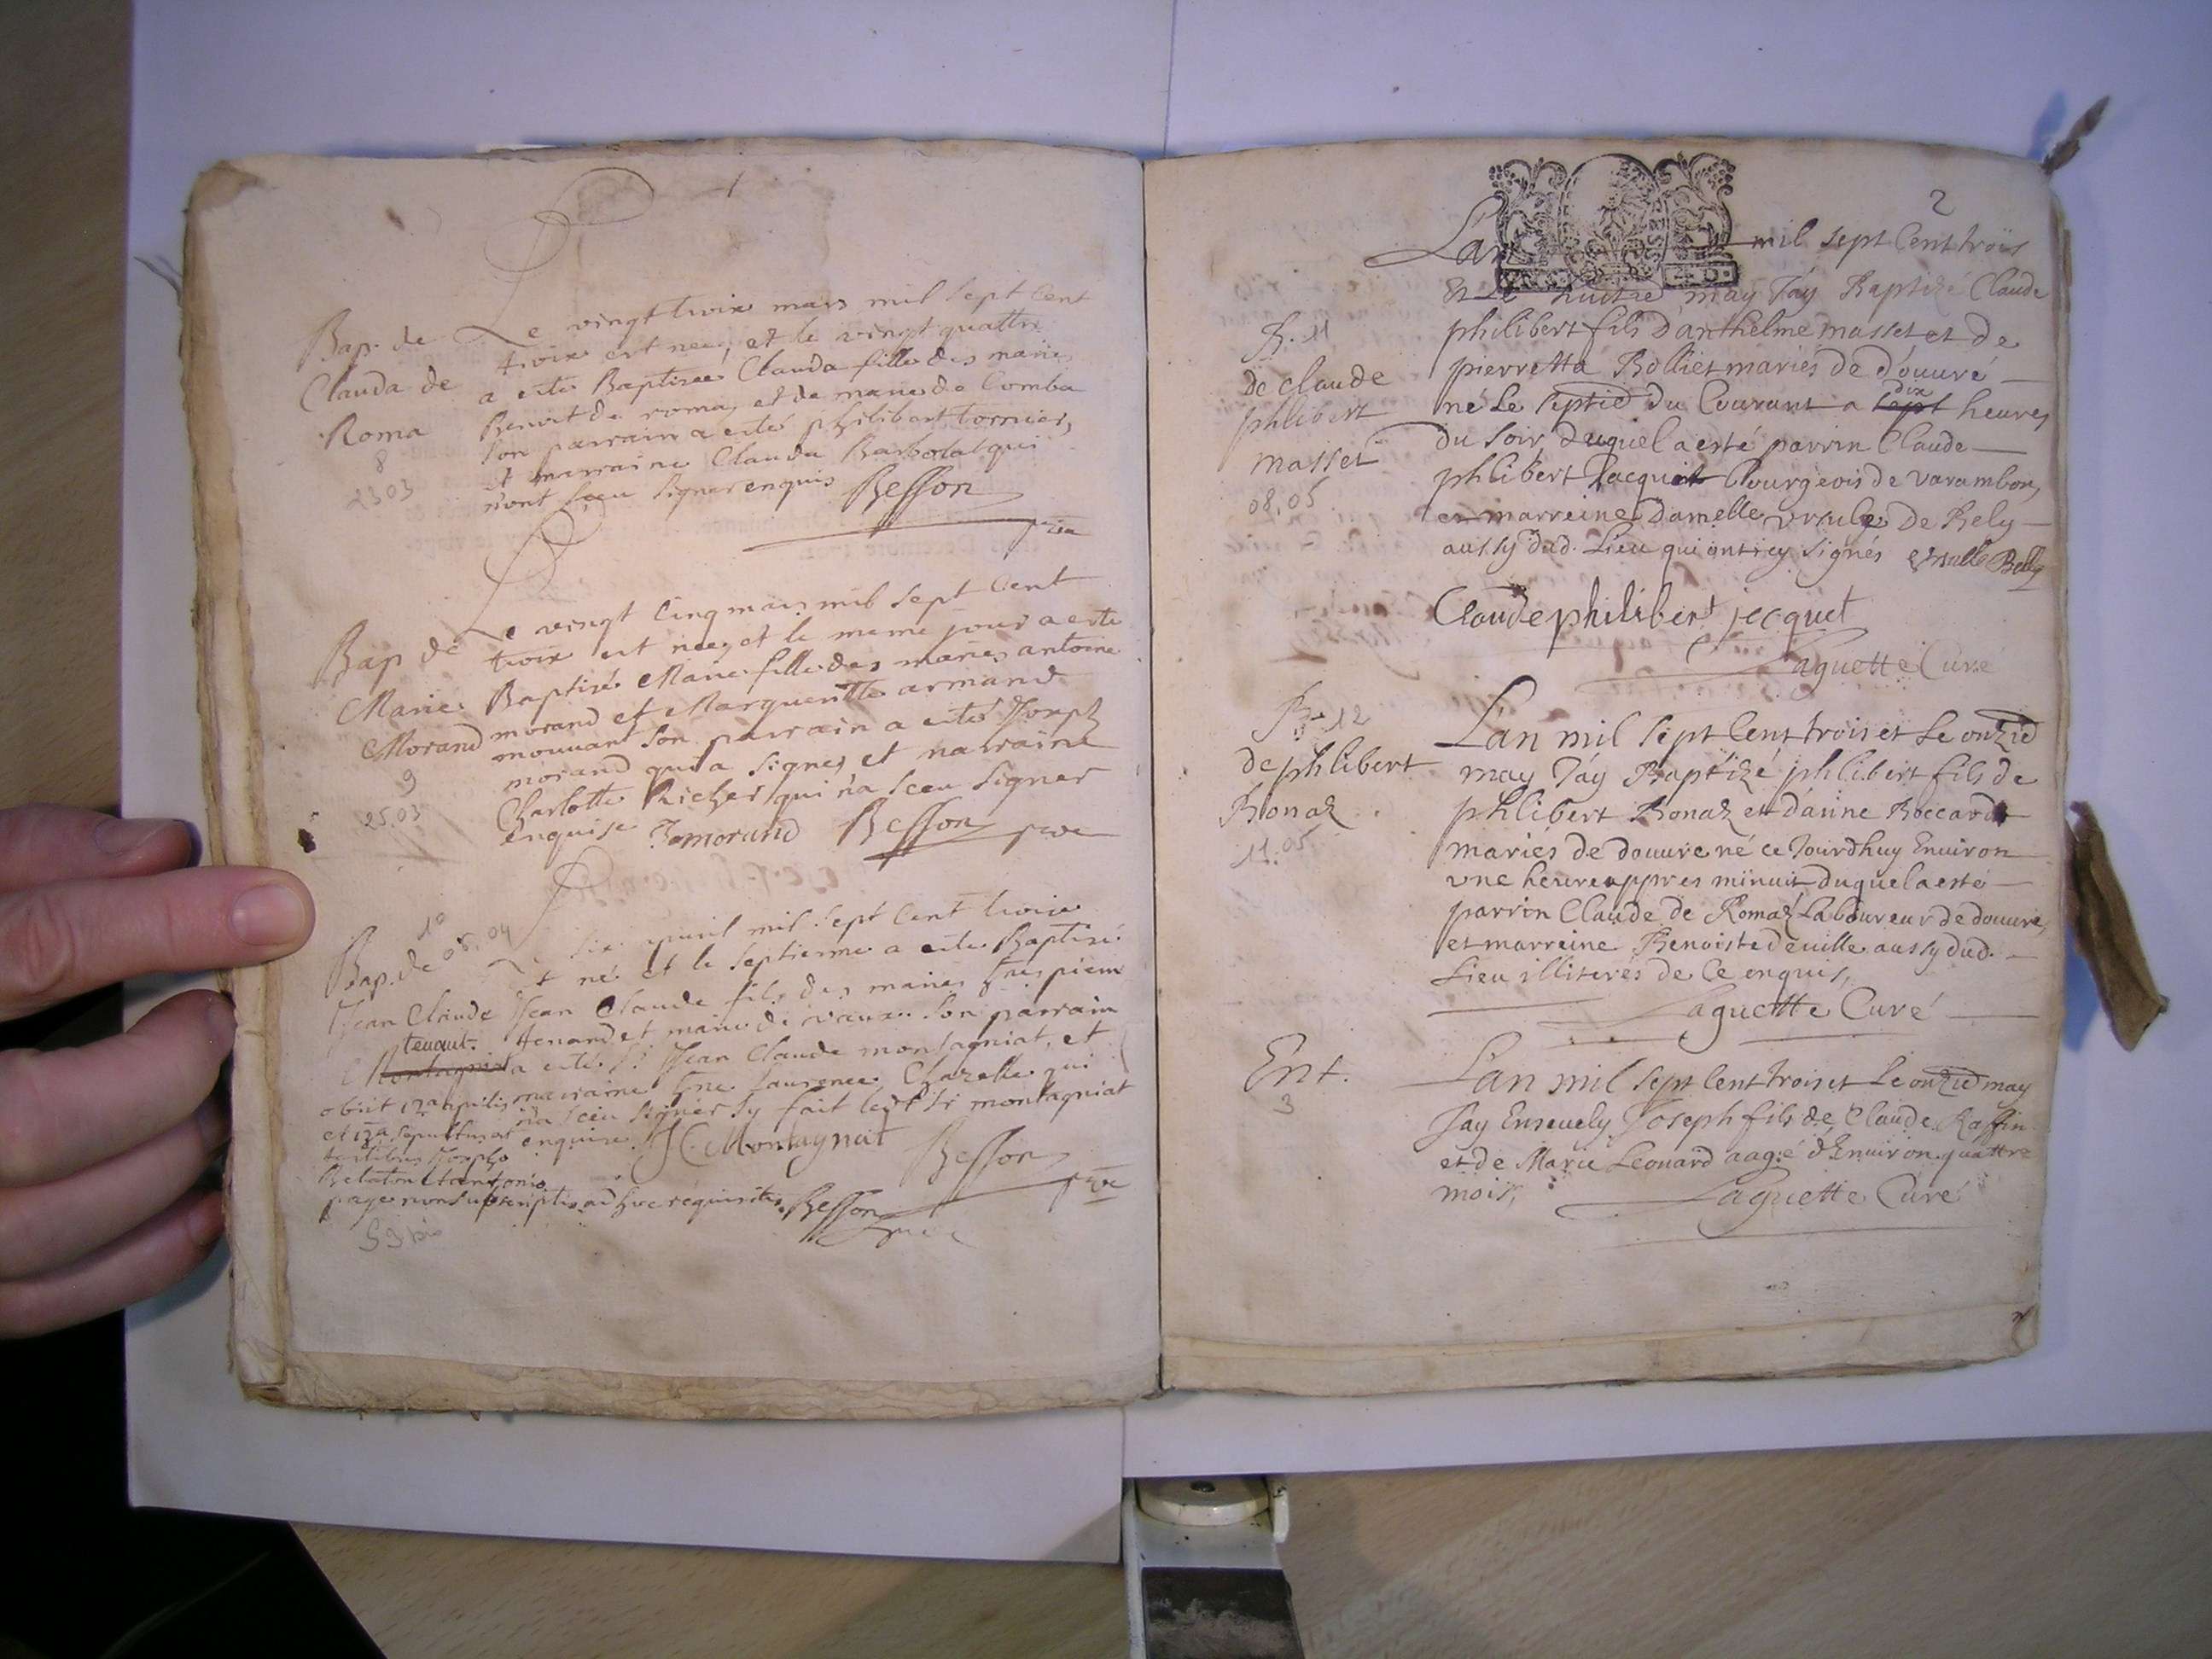 1
Bap. de
Clauda de
Roma
8
23 03
Le vingt troix mars mil sept Cent
troix est neé, et le vingt quattre
a esté Baptiseé Clauda fille des mariés
Benoit de roma, et de marie de Comba
Son parrain a esté philibert tornier,
et marraine Clauda Barbolat qui
n'ont sceu signer enquis Besson
Bap de
Marie
Morand
9
25.03
Le vingt Cinq mars mil sept Cent
troix est neé, et le meme jour a esté
Baptisé Marie fille des mariés antoine
morand et Margueritte armand
mouuant Son parrain a esté Joseph
morand qui a signé, et marraine
Charlotte Richer qui n'a sceu signer
enquise morand Besson
10
Bap. de 06.04
Jean Claude
tenant.
Montagniat
Le six apuril mil sept Cent troix
est né et le septiesme a esté Baptisé
Jean Claude fils des mariés pierre
tenand et marie de vaux. Son parrain
a esté Sr Jean Claude montagniat, et
marraine laurence Chazelle qui
n'a sceu signer sy fait ledt Sr montagniat
enquise. JC. Montagniat Besson
obiit 12a aprilis
et 13a sepultus
testibus Josepho
Antonio
page non subscriptis ad hoc requisitis. Besson
2
L'an mil sept Cent trois
Et Le huitie may J'ay Baptize Claude
philibert fils d'anthelme masset et de
pierretta Bolliet mariés de d'ouuré
né Le septie du Courant a sept dix heures
du soir duquel a esté parrin Claude
phlibert Jacquet Bourgeois de varambon,
et marreine damelle vrsule de Bely
aussy dud. Lieu qui ont icy signés vrsulle Belly
Claude philibert jecquet
Laguette Curé
B. 11
de claude
phlibert
masset
08.05
B. 12
de phlibert
Bonaz
11.05
L'an mil sept Cent trois et Le onzie
may J'ay Baptizé phlibert fils de
phlibert Bonaz et d'anne Boccard
mariés de douure né ce Jourdhuy Enuiron
vne heure appres minuit duquel a esté
parrin Claude de Romaz Laboureur de douure,
et marreine Benoiste deuille aussy dud.
Lieu illiterés de Ce enquis,
Laguette Curé
Ent.
3
L'an mil sept Cent trois et Le onzie may
Jay Enseuely Joseph fils de Claude Raffin
et de Marie Leonard aagé d'Enuiron quattre
mois,
Laguette Curé